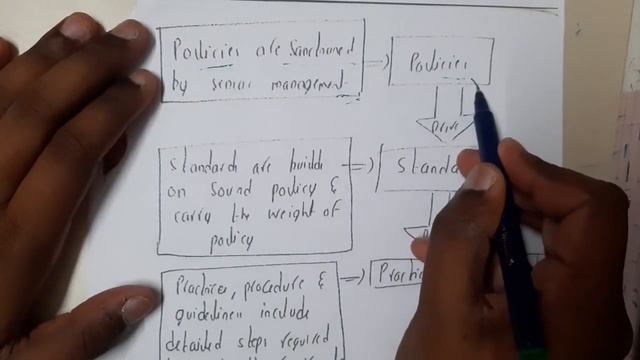 Policies are sanctioned => Policies
by senior management
Drive
Standards are build => Standa
on sound policy &
carry the weight of
policy
Practices, procedure & => Practic
guidelines include
detailed steps required